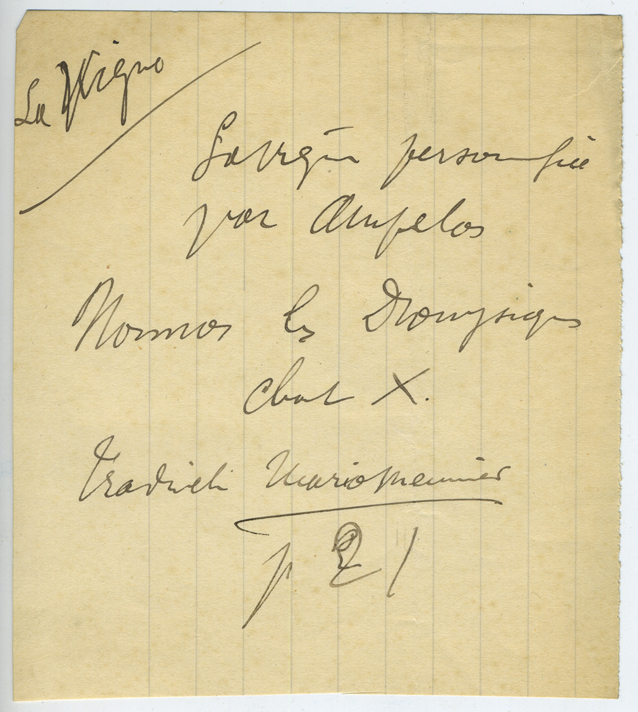 La Vigne
La vigne personnifiée
par Ampelos
Nonnos les Dionysiaques
chant X.
Traduct. Mario Meunier
p 21